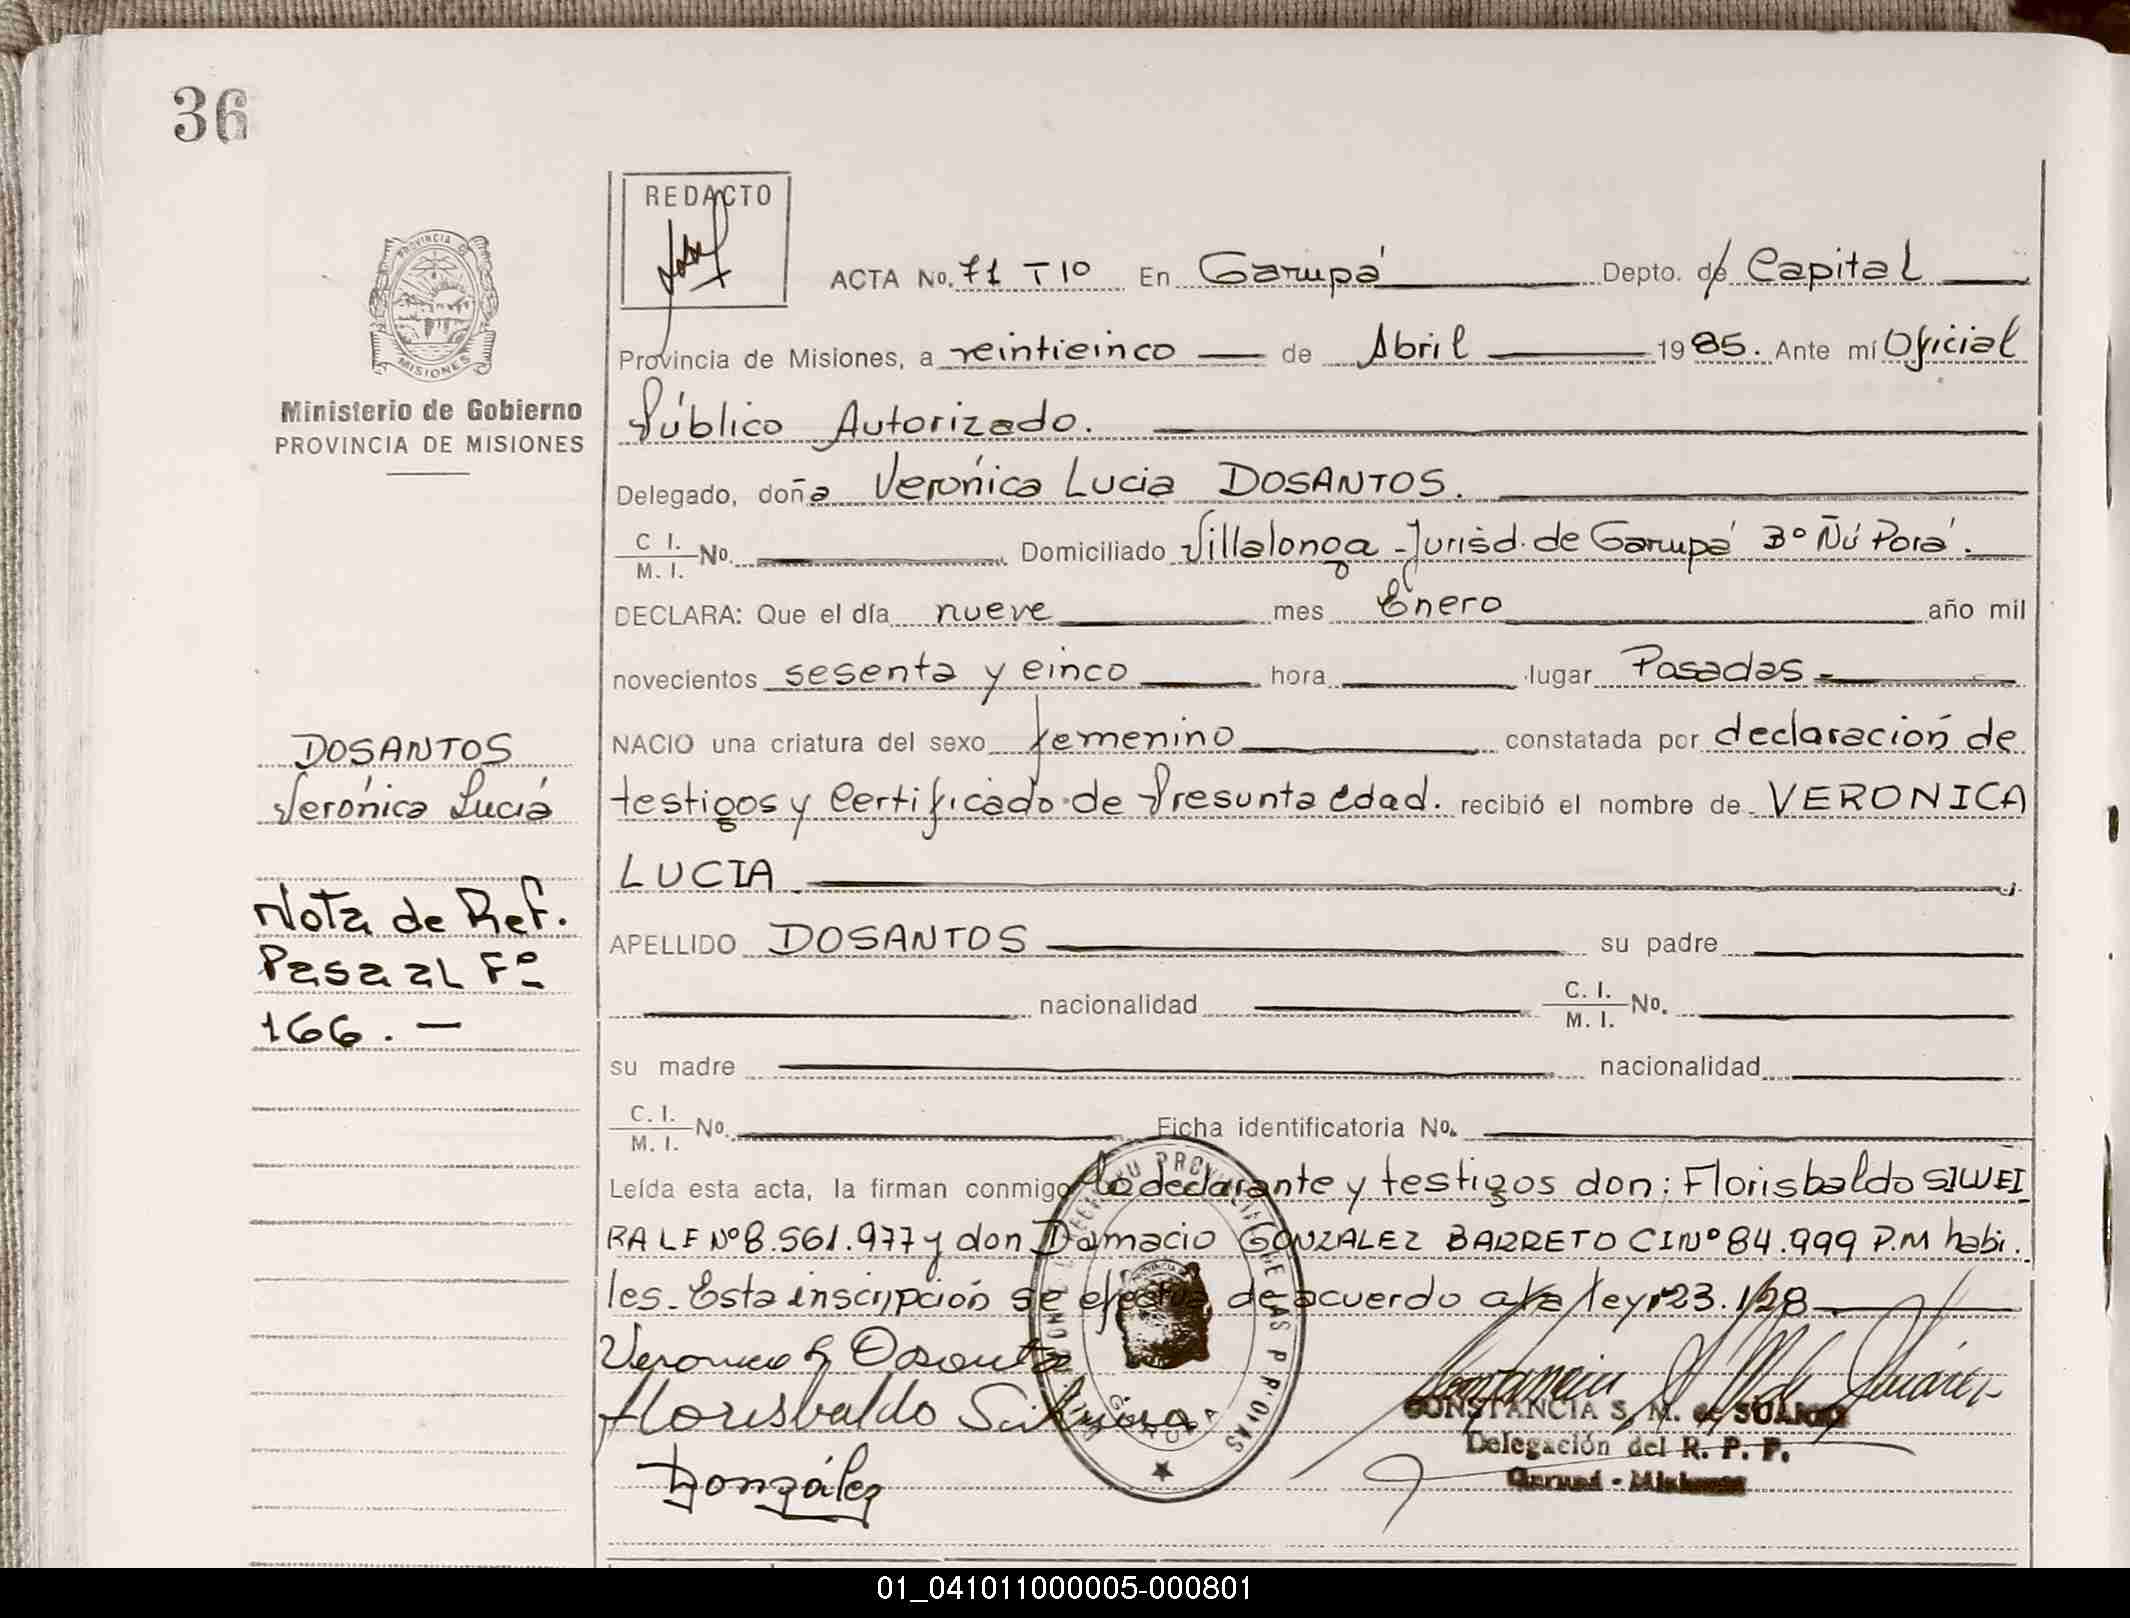 36
REDACTO
ACTA No. 71 Tº Iº En Garupá Depto. de Capital
Provincia de Misiones, a veinticinco de Abril 1985. Ante mí Oficial
Público Autorizado.
Delegado, doña Verónica Lucia DOSANTOS.
C I. M. I. No. Domiciliado Villalonga - Jurisd. de Garupá Bº Ñú Porá.
DECLARA: Que el día nueve mes Enero año mil
novecientos sesenta y cinco hora lugar Posadas
NACIO una criatura del sexo femenino constatada por declaración de
testigos y Certificado de Presunta edad. recibió el nombre de VERONICA
LUCIA
APELLIDO DOSANTOS su padre
nacionalidad C. I. M. I. No.
su madre nacionalidad
C. I. M. I. No. Ficha identificatoria No.
Leída esta acta, la firman conmigo la declarante y testigos don: Florisbaldo SILVEI
RA LE Nº 8.561.977 y don Damacio GONZALEZ BARRETO CI Nº 84.999 P.M habi.
les. Esta inscripción se efectua de acuerdo a la ley 23.128
Florisbaldo Silveira
González
CONSTANCIA S. M. de SUAREZ
Delegación del R. P. P.
Garupá - Misiones
PROVINCIA DE
MISIONES
Ministerio de Gobierno
PROVINCIA DE MISIONES
DOSANTOS
Verónica Lucía
Nota de Ref.
Pasa al Fº
166. —
GARUPA
01_041011000005-000801